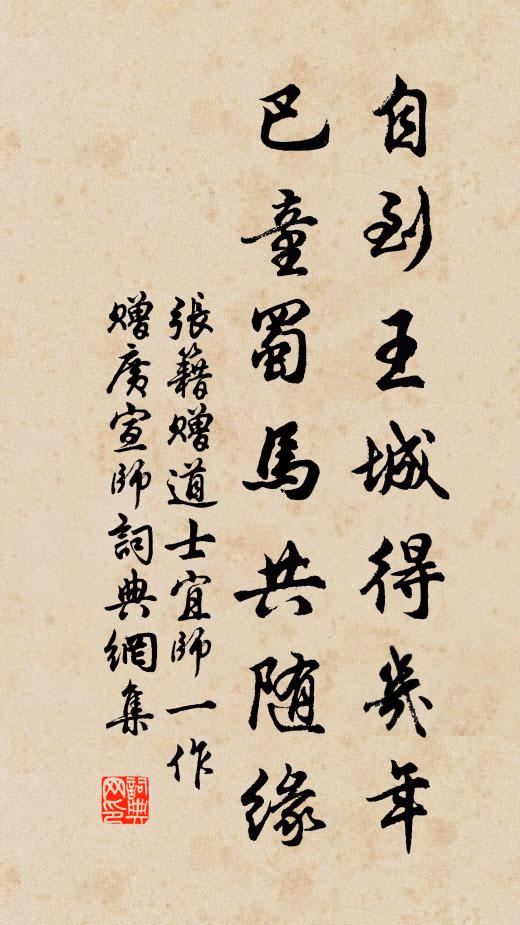 自到王城得幾年
巴童蜀馬共随緣
張籍贈道士宜師一作
贈廣宣師詞典網集
詞典网印